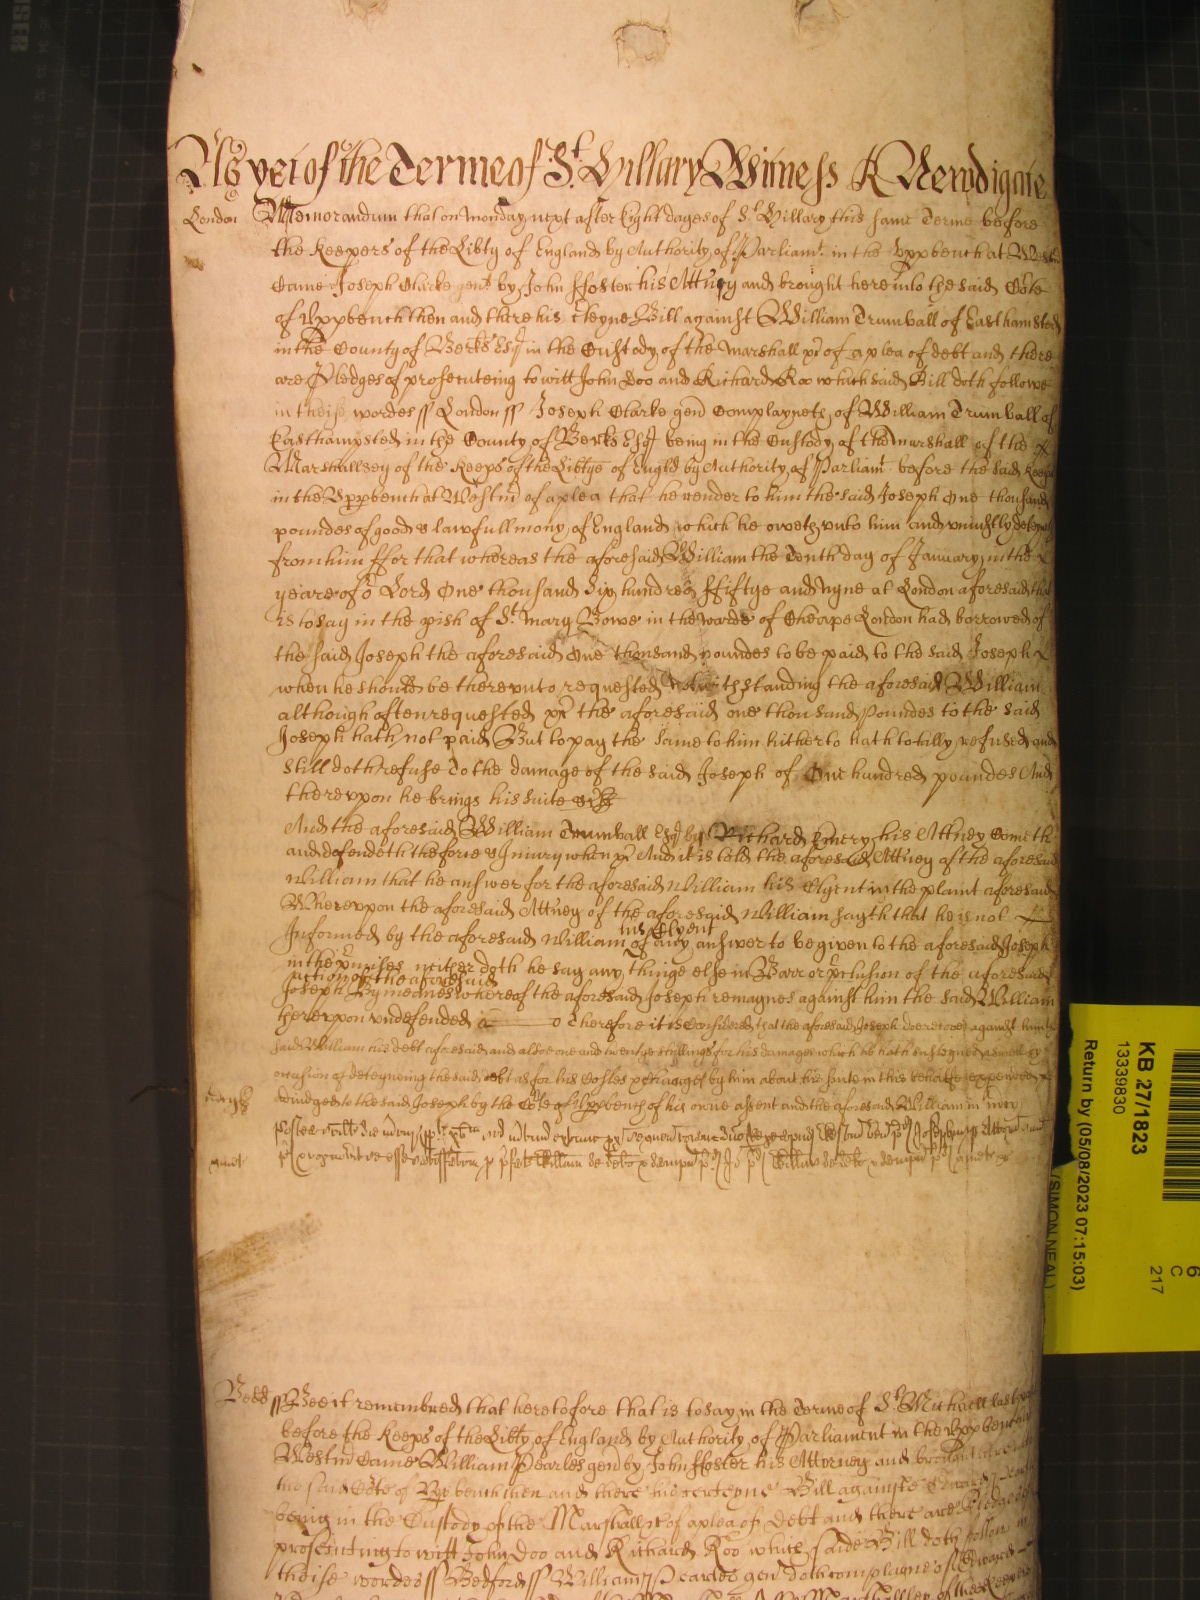 As yet of the Terme of St. Hillary Witness R Newdigate
London Memorandum that on Monday next after Eight dayes of St. Hillary this same Terme before
the Keepers of the Libty of England by Authority of Parliamt. in the Vppbench at Westm
Came Joseph Clarke gent by John ffoster his Attney and brought here into the said Cote
of Vppbench then and there his Cteyne Bill against William Trumball of Easthamsted
in the County of Berks Esqr in the Custody of the Marshall &c of a plea of debt and there
are Pledges of prosecuteing to witt John Doo and Richard Roo which said Bill doth followe
in theise wordes ss London ss Joseph Clarke gent Complayneth of William Trumball of
Easthampsted in the County of Berks Esqr being in the Custody of the Marshall of the
Marshallsey of the Keeps of the Libtye of Engld by Authority of Parliamt before the said Keeps
in the Vppbench at Westm of a plea that he render to him the said Joseph One thousand
poundes of good & lawfull mony of England which he oweth vnto him and vniustly deteynes
from him ffor that whereas the aforesaid William the Tenth day of January in the
yeare of or Lord One thousand Six hundred ffiftye and Nyne at London aforesaid that
is to say in the pish of St. Mary Bowe in the warde of Cheape London had borrowed of
the said Joseph the aforesaid One thousand poundes to be paid to the said Joseph
when he should be therevnto requested Notwithstanding the aforesaid William
although often requested &c the aforesaid one thousand poundes to the said
Joseph hath not paid But to pay the same to him hitherto hath totally refused and
still doth refuse To the damage of the said Joseph of One hundred poundes And
therevpon he brings his suite &c
And the aforesaid William Trumball Esqr by Richard Emery his Attney Cometh
and defendeth the force & Iniury when &c And it is told the aforesaid Attney of the aforesaid
William that he answer for the aforesaid William his Clyent in the plaint aforesaid
Wherevpon the aforesaid Attney of the aforesaid William sayth that he is not
Informed by the aforesaid William his Clyent of any answer to be given to the aforesaid Joseph
in the pmisses neither doth he say any thinge else in Barr or pclusion of the aforesaid
action of the aforesaid
Joseph By meanes whereof the aforesaid Joseph remaynes against him the said William
therevpon vndefended Therefore it is Considered that the aforesaid Joseph doe recover against him the
said William his debt aforesaid and alsoe one and twentye shillings for his damages which he hath susteyned aswell by
occasion of deteyneing the said debt as for his Costes & Charges by him about his suite in this behalfe expended
adiudged to the said Joseph by the Cote of Vppbench of his owne assent and the aforesaid William in mercy
Bedd ss Bee it remembred that heretofore that is to say in the Terme of St. Michaell last past
before the Keeps of the Libty of England by Authority of Parliament in the Vppbench at
Westm Came William Pearles gen by John ffoster his Attorney and brought
the said Cote of Vppbench then and there his certeyne Bill againste Edward
being in the Custody of the Marshall &c of a plea of Debt and there are Pledges of
prosecuting to witt John Doo and Richard Roo which saide Bill doth follow in
theise wordes ss Bedford ss William Pearles gen doth complayne of Edward
KB 27/1823
13339830
Return by (05/08/2023 07:15:03)
(SIMON NEAL)
6
C
217